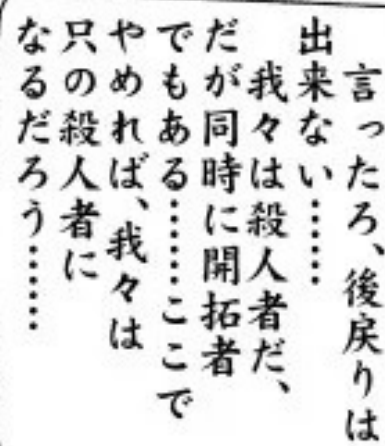 言ったろ、後戻りは
出来ない……
我々は殺人者だ、
だが同時に開拓者
でもある……ここで
やめれば、我々は
只の殺人者に
なるだろう……